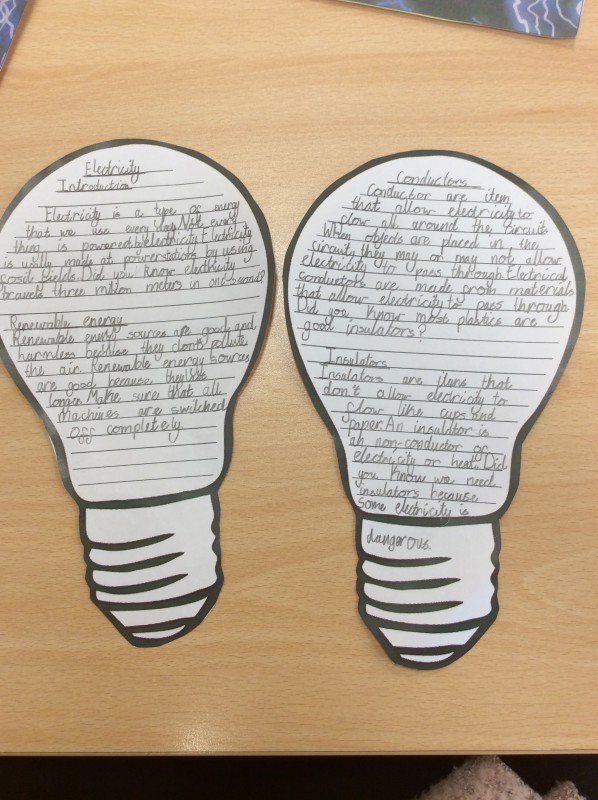 Electricity
Introduction
Electricity is a type of energy
that we use every day. every
thing is powered by electricity. Electricity
is usilly made at powerstations by using
fosil fields. Did you know electricity
travels three million meters in one second?
Renewable energy
Renewable energy sources are good and
harmless because they don't pollute
the air. Renewable energy sources
are good because they
longer. Make sure that all
machines are switched
off completely.
Conductors
Conductor are item
that allow electricity to
flow all around the circuits
When objects are placed in the
circuit, they may or may not allow
electricity to pass through. Electrical
conductors are made from materials
that allow electricity to pass through
Did you know most plastics are
good insulators?
Insulators
Insulators are items that
don't allow electricity to
flow like cups and
paper. An insulator is
an non-conductor of
electricity or heat. Did
you know we need
insulators because
some electricity is
dangerous.